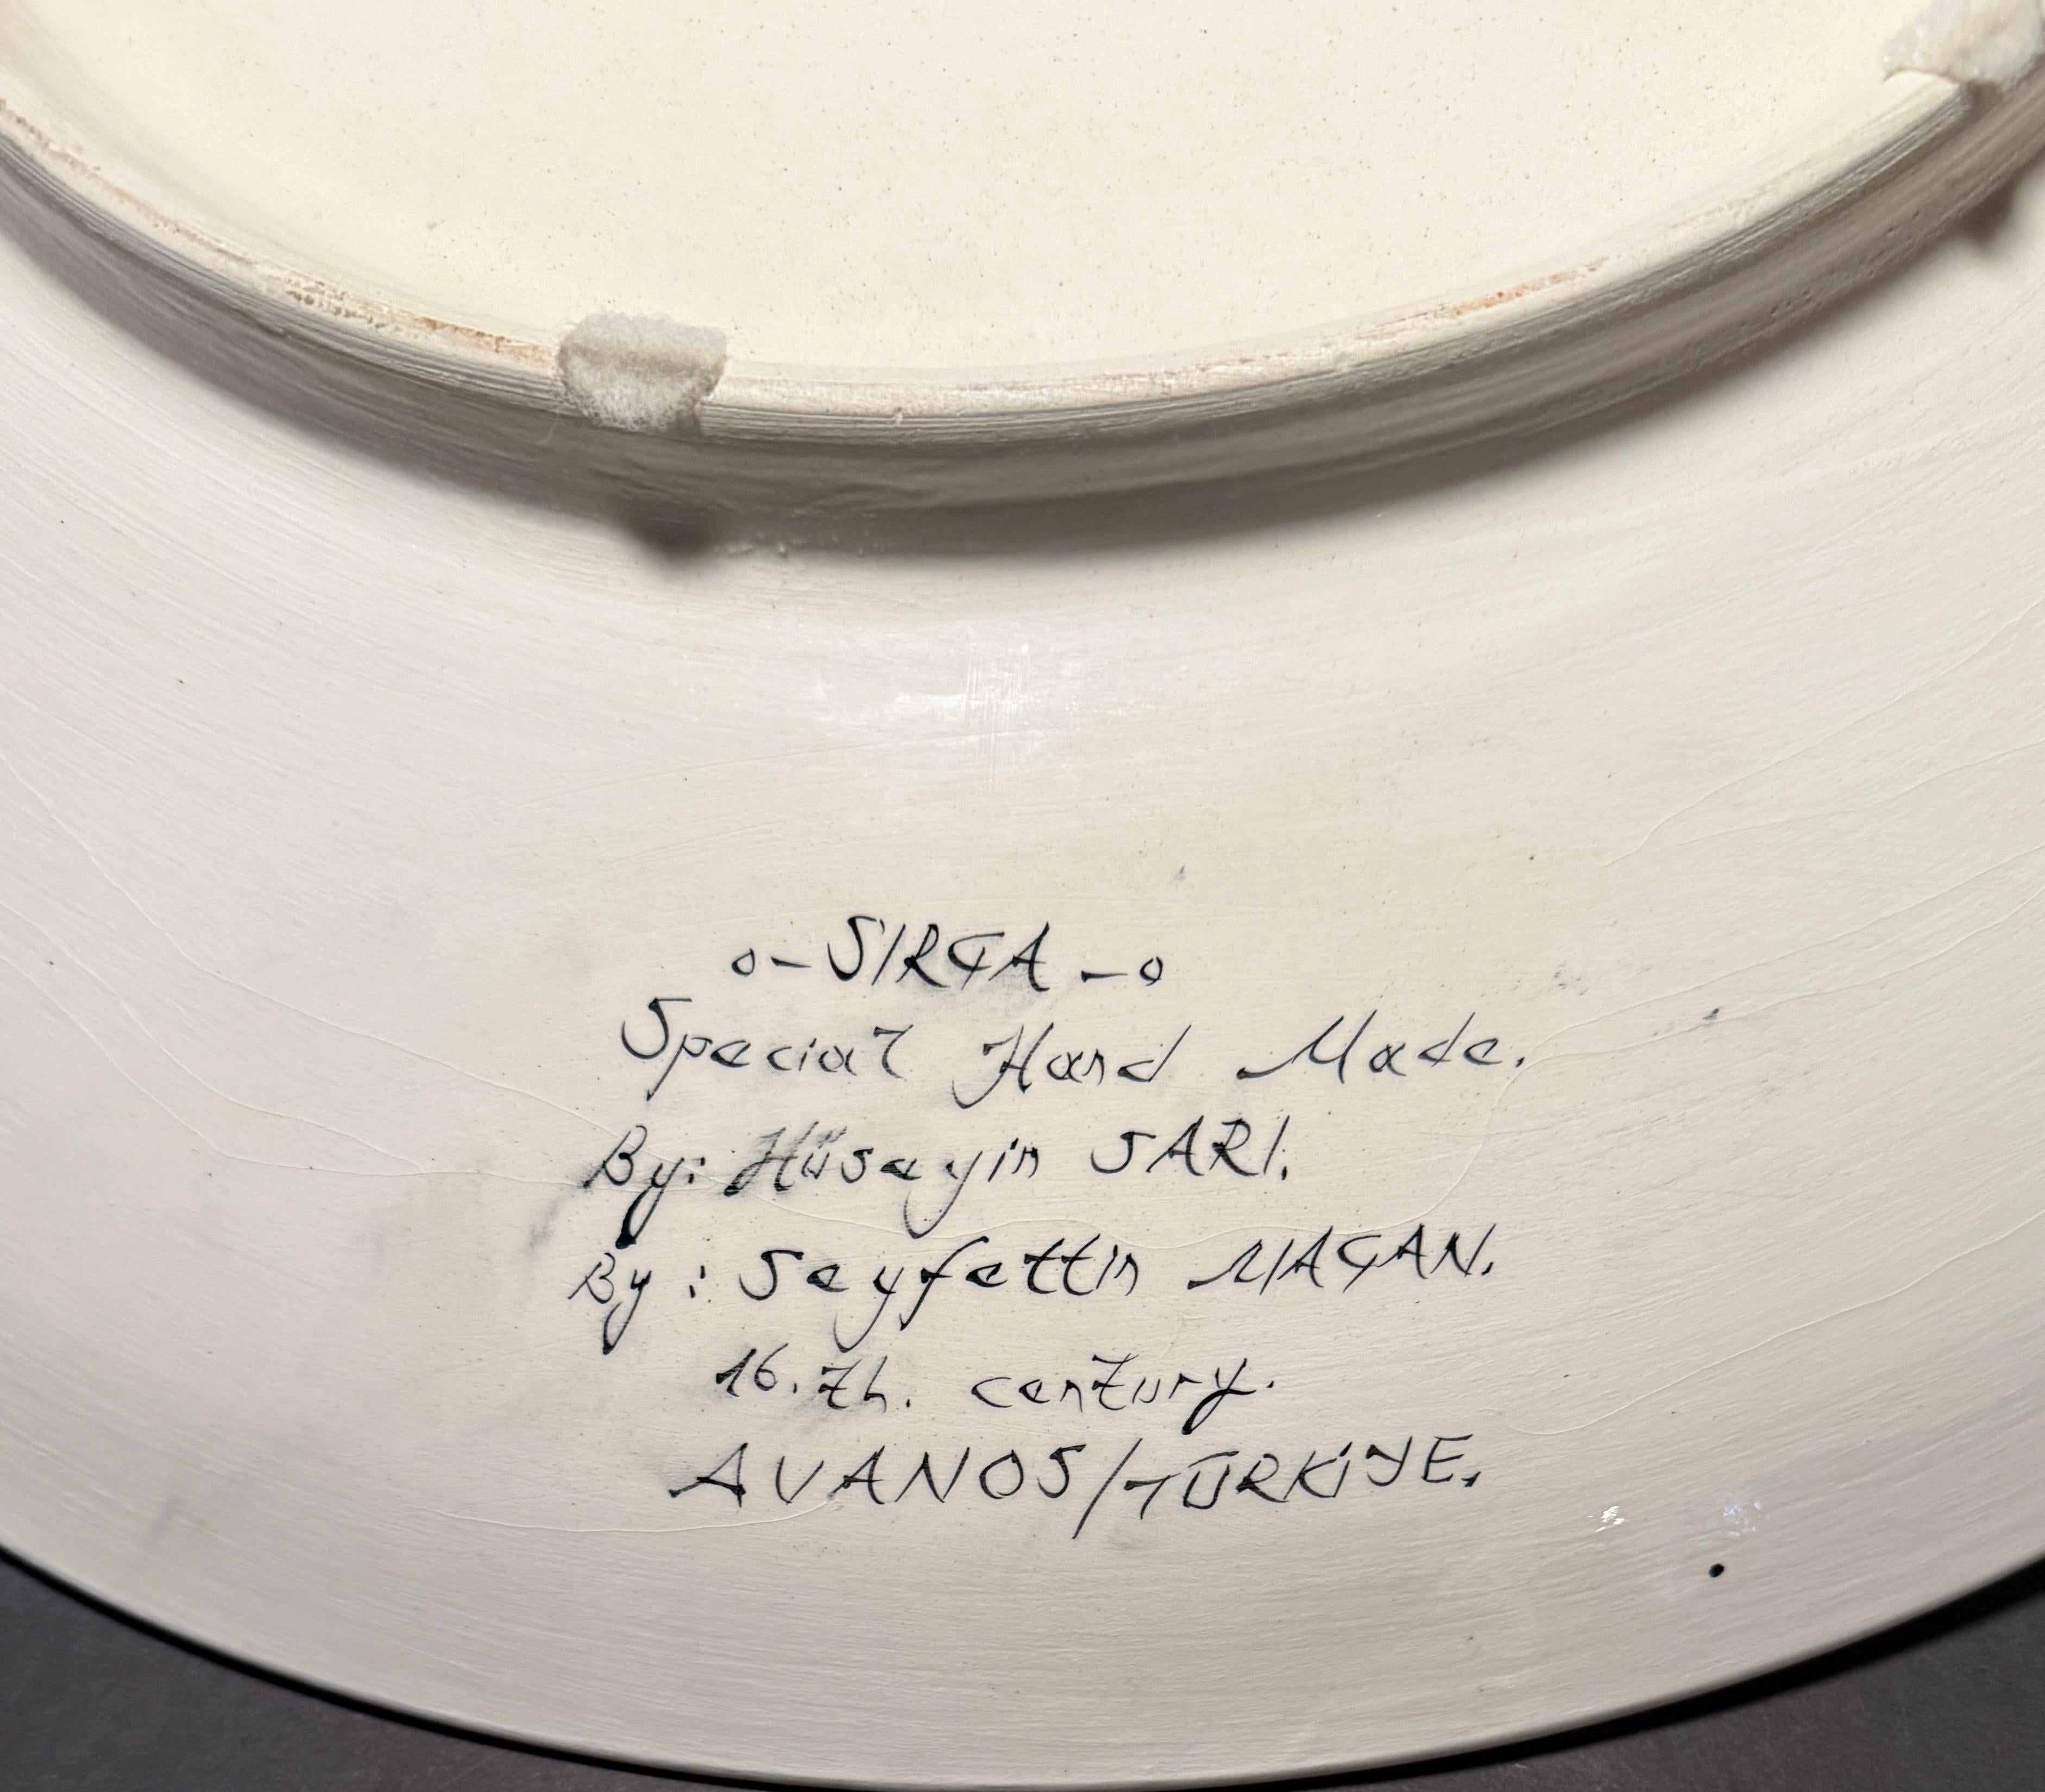 o-SIRÇA-o
Special Hand Made.
By: Hüseyin SARI.
By: Seyfettin MAÇAN.
16.th. century.
AVANOS/TÜRKİYE.